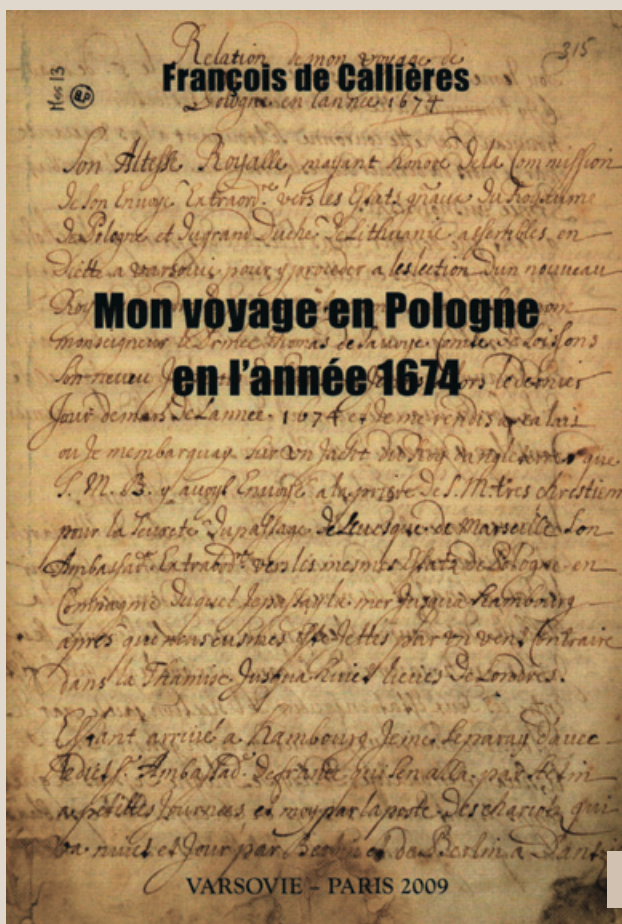 Relation de mon voyage de
315
Mss 13
BP
François de Callières
Pologne en lannée 1674
Son Altesse Royalle mayant honoré dela Commission
de son Envoyé Extraord.re vers les Estats du Royaume
de Pologne et du grand Duché de Lithuanie assemblés en
Diette a varsovie pour y proceder a leslection dun nouveau
Roy
Mon voyage en Pologne
monseigneur le Prince Thomas de Savoye Comte de Soissons
son neveu
en l'année 1674
Jour demars de Lannée 1674 et je me rendis a Calais
ou Je membarquay sur un Jacht du Roy dangleterre que
S. M. B. y avoyt Envoyé a la priere de S. M. tres chrestien
pour la Seureté du passage de Levesque de Marseille son
Ambassad.r Extraord.re vers les mesmes Estats de Pologne en
Compagnie duquel Je passay la mer Jusqua Hambourg
apres que nous eusmes esté Jettes par un vent Contraire
dans la Thamise Jusqua lieües de Londres.
Estant arrivé a Hambourg Je me separay davec
ledict S.r Ambassad.r de france qui sen alla par Stetin
a petittes Journées et moy par la poste des chariots qui
va nuict et Jour par Berlin et de Berlin a
VARSOVIE – PARIS 2009